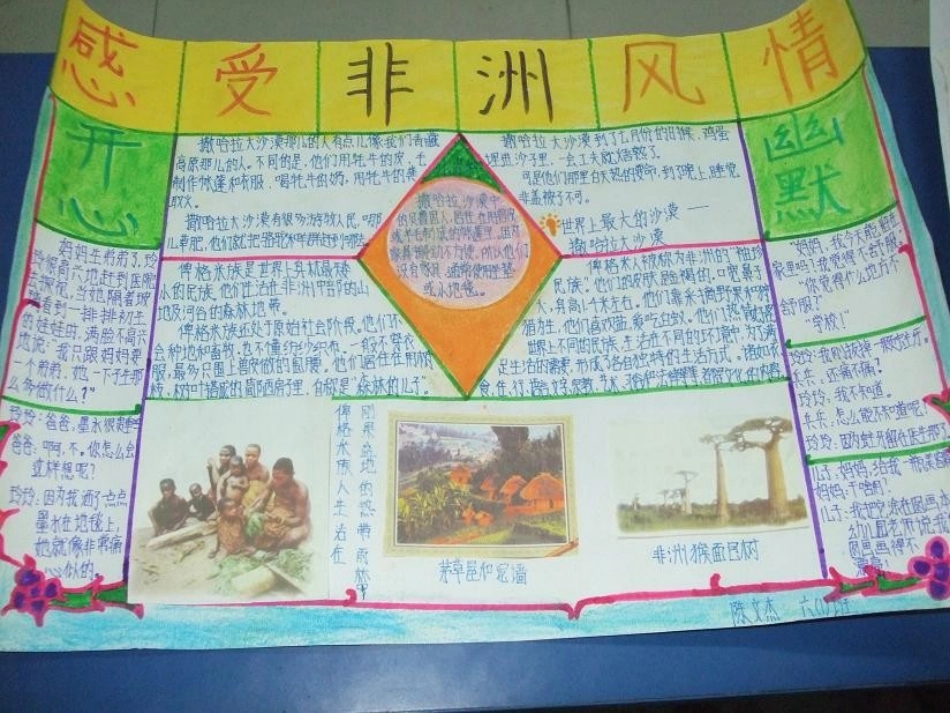 感受非洲风情
开心
妈妈生弟弟了,玲
玲很高兴地赶到医院
去探视,当她隔着玻
璃看到一排排初生
的娃娃时,满脸不高兴
地说:"我只跟妈妈要
一个弟弟,她一下子生那
么多做什么?"
玲玲:爸爸,墨水很贵吗?
爸爸:啊,不。你怎么会
这样想呢?
玲玲:因为我洒了一点点
墨水在地毯上,
她就像非常痛
心似的。
撒哈拉大沙漠那儿的人有点儿像我们青藏
高原那儿的人。不同的是,他们用牦牛的皮、毛
制作帐篷和衣服、喝牦牛的奶,用牦牛的粪
取火。
撒哈拉大沙漠有很多游牧人民。哪
儿草肥,他们就把骆驼和羊群赶到哪儿
撒哈拉沙漠中
的贝都因人,居住在用兽皮
没有家具,通常使用坐垫
或小地毯。
撒哈拉大沙漠到了七月份的时候,鸡蛋
埋进沙子里,一会工夫就烤熟了。
可是他们那里白天热的要命,到了晚上,睡觉
非盖被子不可。
世界上最大的沙漠——
撒哈拉大沙漠
俾格米族是世界上身材最矮
小的民族。他们生活在非洲中部的山
地及河谷的森林地带。
俾格米族还处于原始社会阶段。他们不
会种地和畜牧,也不懂纺纱织布,一般不穿衣
服,最多只围上兽皮做的围腰。他们居住在用树
枝、树叶搭成的简陋茜房里,自称是"森林的儿子"。
俾格米人被称为非洲的"袖珍
民族"。他们的皮肤是黝褐的,口宽鼻子
大,身高1千米左右。他们靠采摘野果和狩
猎为生。他们喜欢盐,爱吃白蚁。
世界上不同的民族,生活在不同的环境中,为了满
足生活的需要,形成了各自独特的生活方式。诸如衣、
幽默
"妈妈,我今天能留在
家里吗?我觉得不舒服。"
"你觉得什么地方不
舒服?"
"学校!"
玲玲:我刚刚拔掉一颗蛀牙。
兵兵:还痛不痛?
玲玲:我不知道。
兵兵:怎么能不知道呢?
玲玲:因为蛀牙留在医生那了
妈妈:干啥用?
圆画得不
漂亮!
刚果盆地的热带雨林中
俾格米族人生活在
茅草屋和泥墙
非洲猴面包树
陈文杰 六(1)班